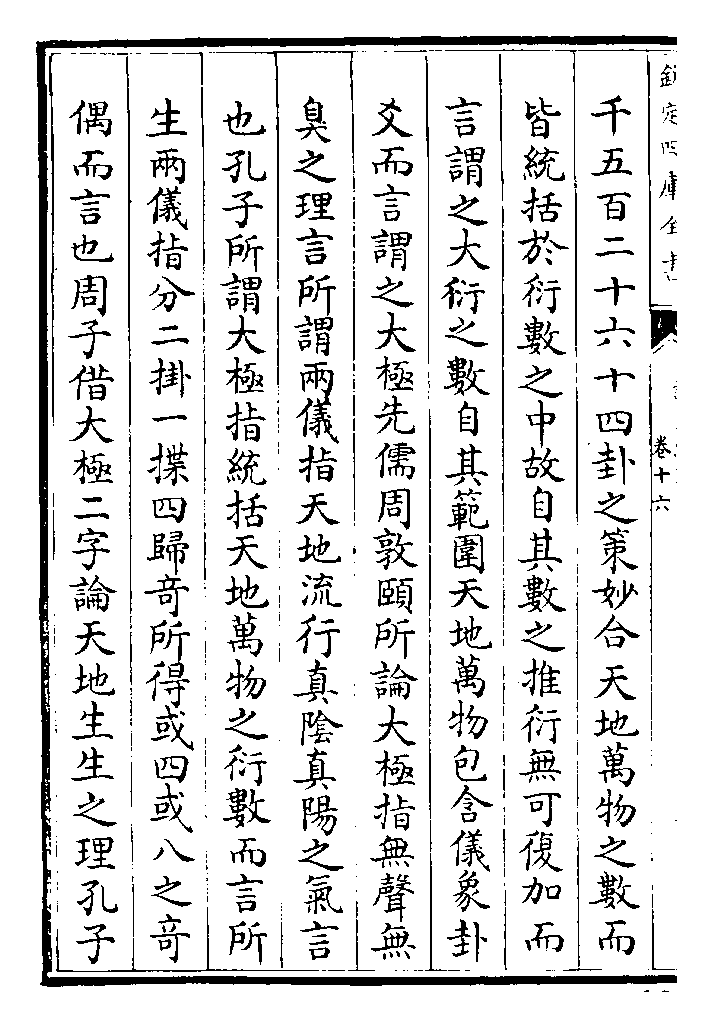 欽定四庫全書
卷十六
千五百二十六十四卦之策妙合天地萬物之數而
皆統括於衍數之中故自其數之推衍無可復加而
言謂之大衍之數自其範圍天地萬物包含儀象卦
爻而言謂之大極先儒周敦頤所論大極指無聲無
臭之理言所謂兩儀指天地流行真陰真陽之氣言
也孔子所謂大極指統括天地萬物之衍數而言所
生兩儀指分二掛一揲四歸奇所得或四或八之奇
偶而言也周子借大極二字論天地生生之理孔子